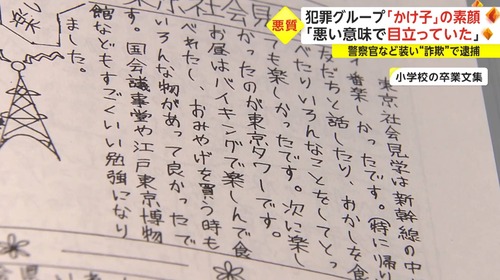 悪質
犯罪グループ「かけ子」の素顔
「悪い意味で目立っていた」
警察官など装い“詐欺”で逮捕
小学校の卒業文集
東京社会見学は新幹線の中
一番楽しかったです。(特に帰り
友だちと話したり、おかしを食
べたりいろんなことをしてとっ
ても楽しかったです。次に楽し
かったのが東京タワーです。
お昼はバイキングで楽しんで食
べれたし、おみやげを買う時も
いろんな物があって良かったで
す。国会議事堂や江戸東京博物
館などもすごくいい勉強になり
ました。